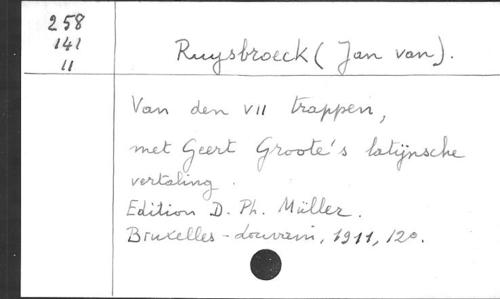 258
141
11
Ruysbroeck (Jan van).
Van den VII trappen,
met Geert Groote's latijnsche
vertaling.
Edition D. Ph. Müller.
Bruxelles - Louvain, 1911, 12o.